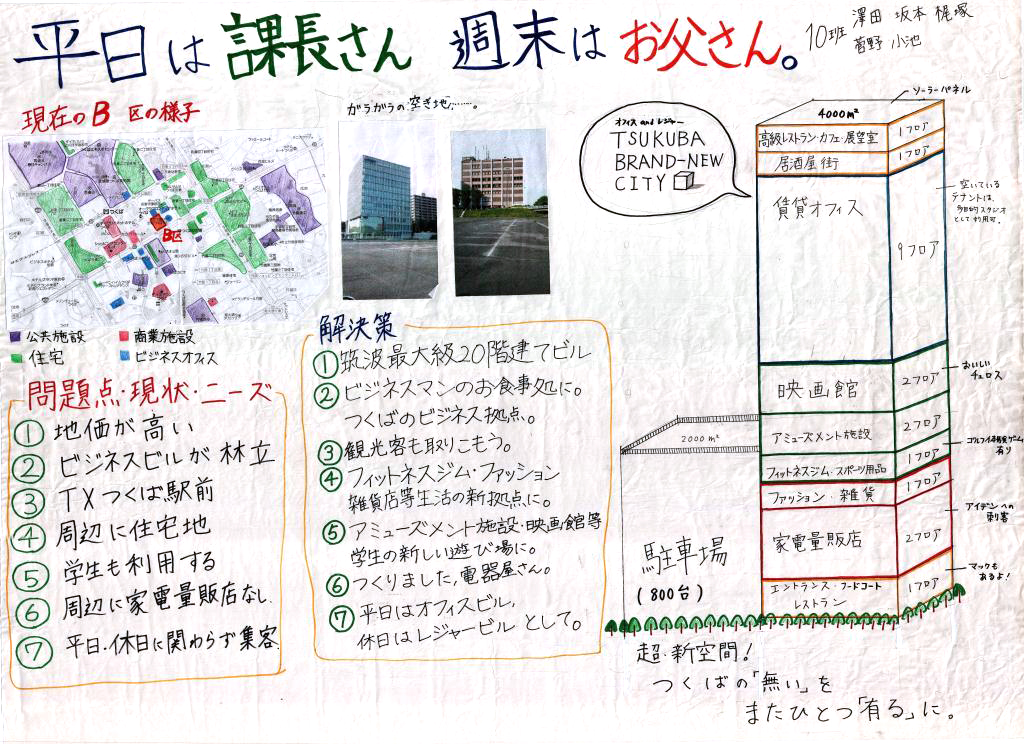 平日は課長さん 週末はお父さん。
10班 澤田 坂本 梶塚
菅野 小池
現在のB区の様子
B区
つくば
公共施設
商業施設
住宅
ビジネスオフィス
ガラガラの空き地……。
問題点・現状・ニーズ
① 地価が高い
② ビジネスビルが林立
③ TXつくば駅前
④ 周辺に住宅地
⑤ 学生も利用する
⑥ 周辺に家電量販店なし
⑦ 平日・休日に関わらず集客
解決策
① 筑波最大級20階建てビル
② ビジネスマンのお食事処に。
つくばのビジネス拠点。
③ 観光客も取りこもう。
④ フィットネスジム・ファッション
雑貨店等生活の新拠点に。
⑤ アミューズメント施設・映画館等
学生の新しい遊び場に。
⑥ つくりました、電器屋さん。
⑦ 平日はオフィスビル,
休日はレジャービルとして。
オフィス and レジャー
TSUKUBA
BRAND-NEW
CITY
ソーラーパネル
4000m²
高級レストラン・カフェ・展望室 1フロア
居酒屋街 1フロア
賃貸オフィス
9フロア
空いている
テナントは、
多目的スタジオ
として利用可。
映画館 2フロア
おいしい
チュロス
アミューズメント施設 2フロア
フィットネスジム・スポーツ用品 1フロア
有り
ファッション・雑貨 1フロア
家電量販店 2フロア
アイデンへの
刺客
エントランス・フードコート
レストラン
1フロア
マックも
あるよ!
2000m²
駐車場
(800台)
超・新空間!
つくばの「無い」を
またひとつ「有る」に。